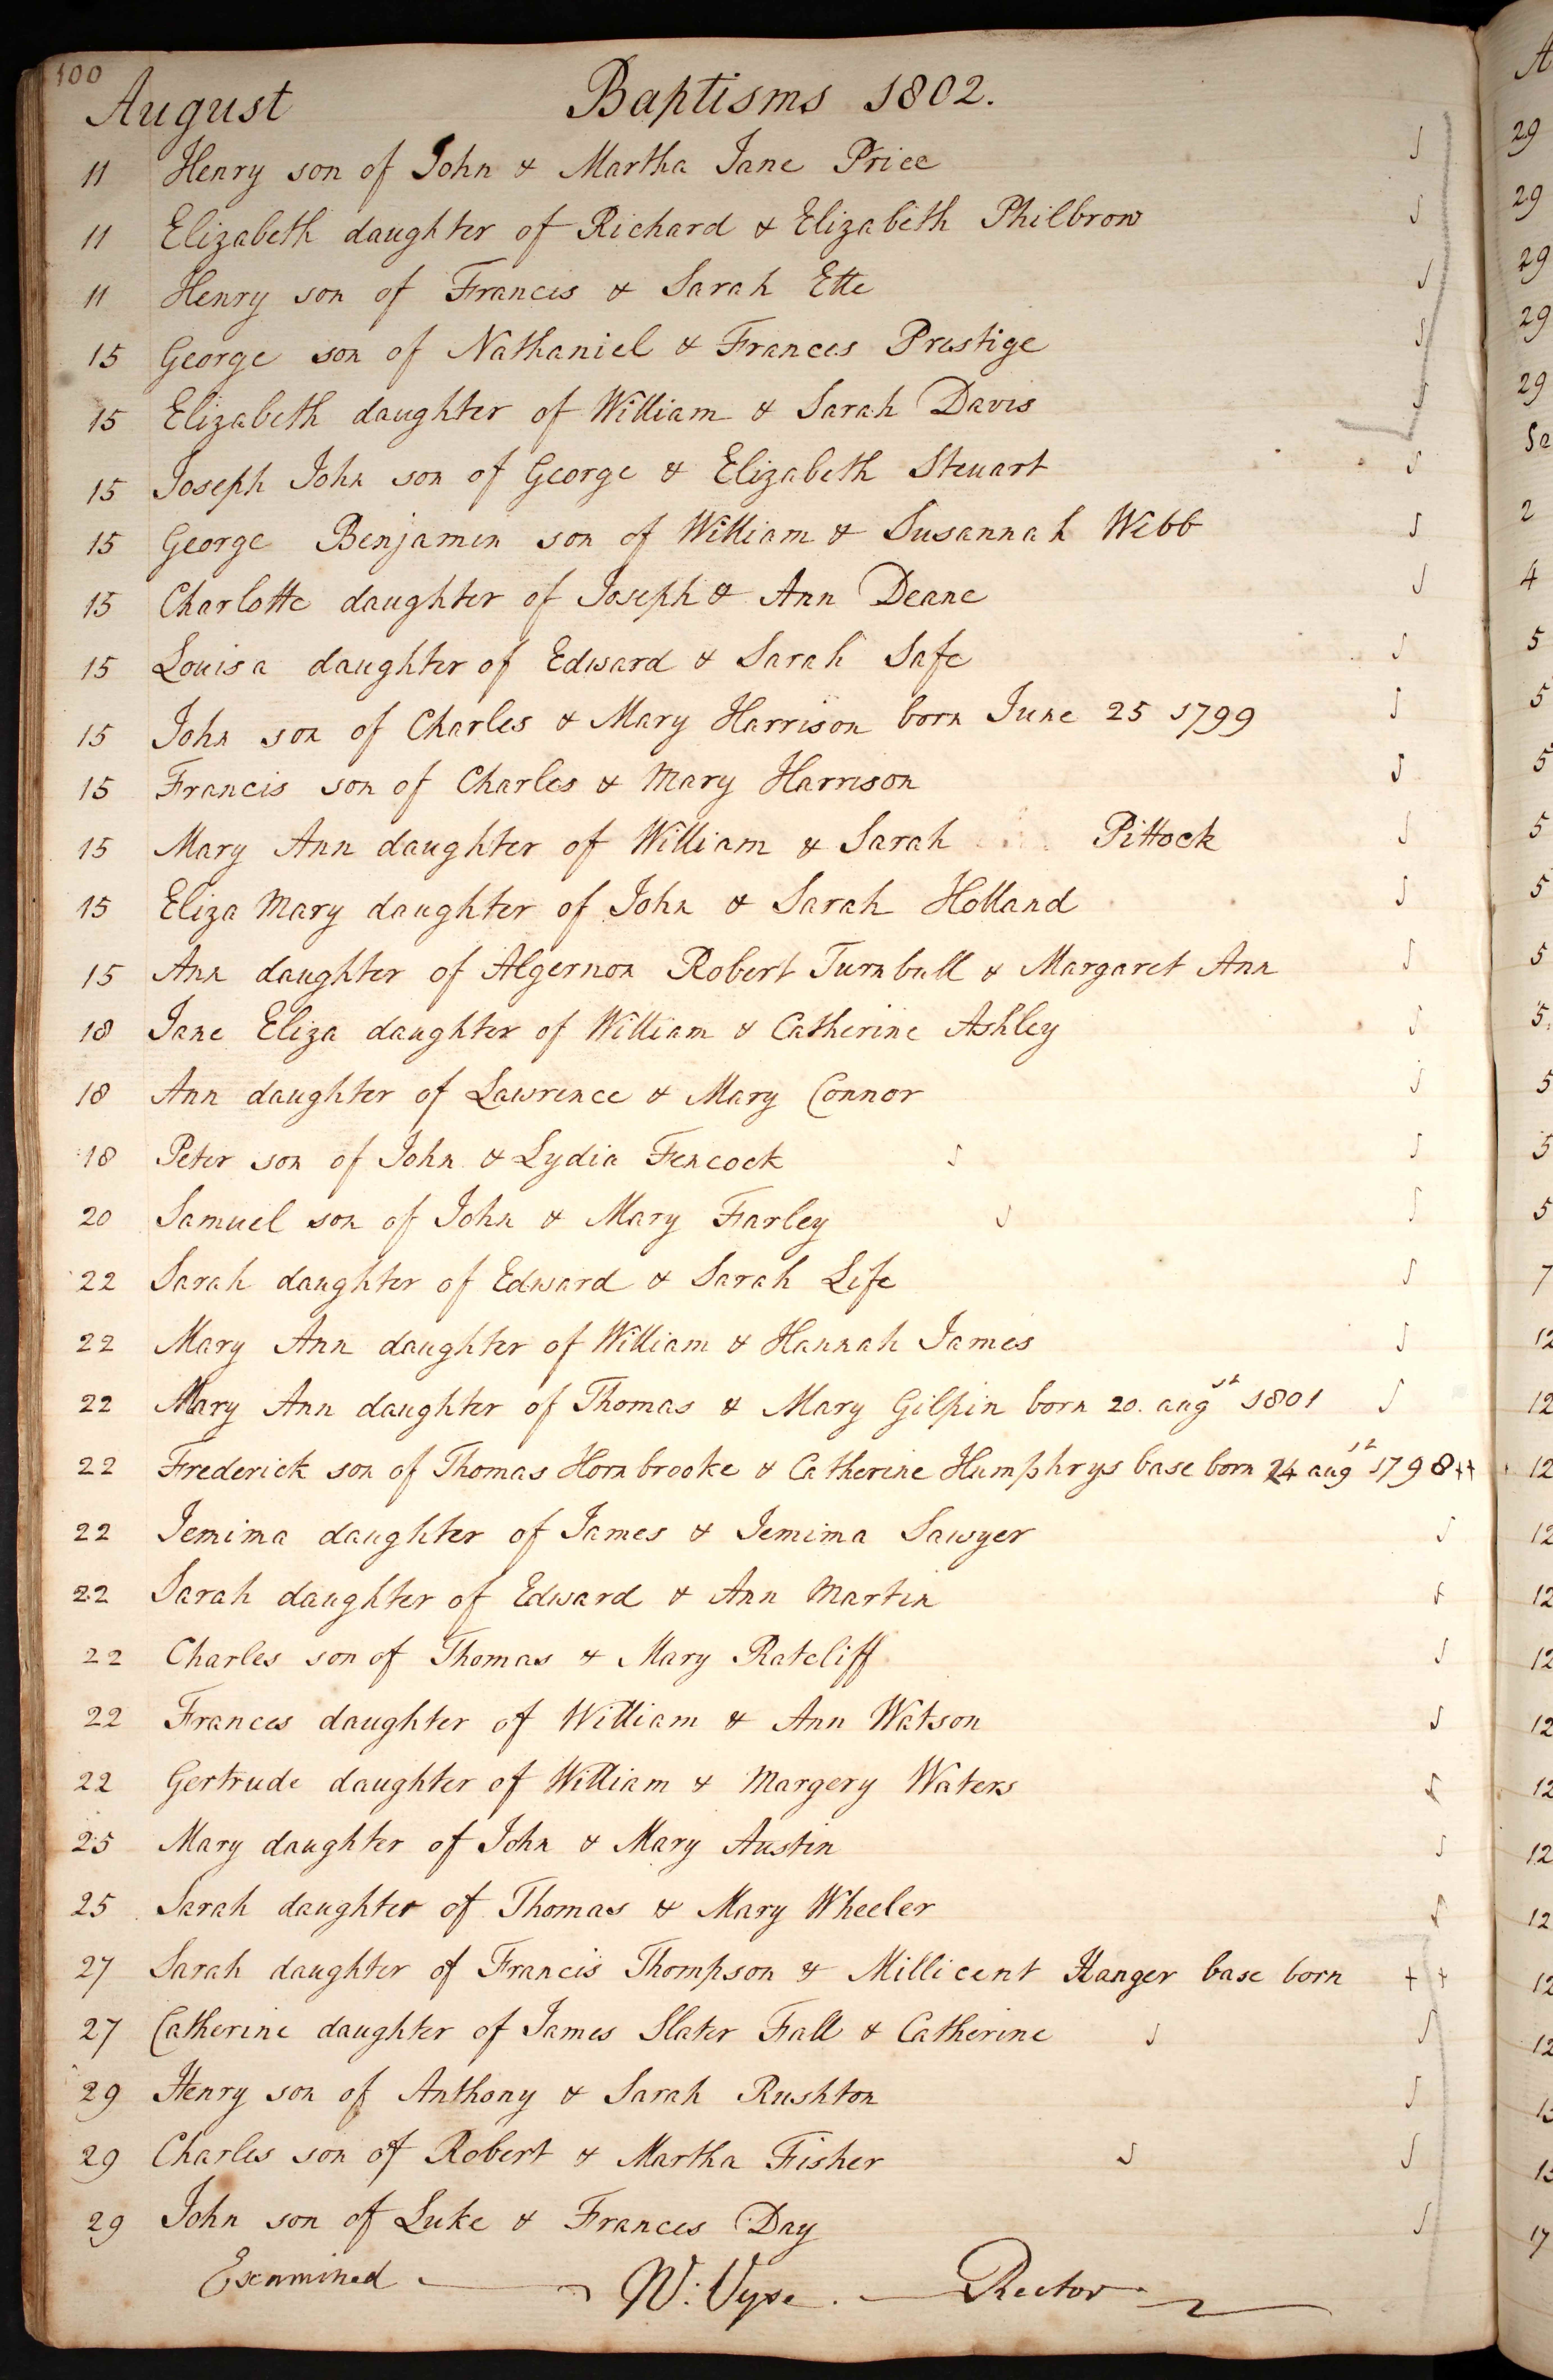 100
August Baptisms 1802.
11 Henry son of John & Martha Jane Price
11 Elizabeth daughter of Richard & Elizabeth Philbrow
11 Henry son of Francis & Sarah Ette
15 George son of Nathaniel & Frances Prestige
15 Elizabeth daughter of William & Sarah Davis
15 Joseph John son of George & Elizabeth Steuart
15 George Benjamin son of William & Susannah Webb
15 Charlotte daughter of Joseph & Ann Deane
15 Louisa daughter of Edward & Sarah Safe
15 John son of Charles & Mary Harrison born June 25 1799
15 Francis son of Charles & Mary Harrison
15 Mary Ann daughter of William & Sarah Pittock
15 Eliza Mary daughter of John & Sarah Holland
15 Ann daughter of Algernon Robert Turnbull & Margaret Ann
18 Jane Eliza daughter of William & Catherine Ashley
18 Ann daughter of Lawrence & Mary Connor
18 Peter son of John & Lydia Fencock
20 Samuel son of John & Mary Farley
22 Sarah daughter of Edward & Sarah Life
22 Mary Ann daughter of William & Hannah James
22 Mary Ann daughter of Thomas & Mary Gilpin born 20. augst 1801
22 Frederick son of Thomas Hornbrooke & Catherine Humphrys base born 24 augst 1798 ++
22 Jemima daughter of James & Jemima Sawyer
22 Sarah daughter of Edward & Ann Martin
22 Charles son of Thomas & Mary Ratcliff
22 Frances daughter of William & Ann Watson
22 Gertrude daughter of William & Margery Waters
25 Mary daughter of John & Mary Austin
25 Sarah daughter of Thomas & Mary Wheeler
27 Sarah daughter of Francis Thompson & Millicent Hanger base born ++
27 Catherine daughter of James Slater Fall & Catherine
29 Henry son of Anthony & Sarah Rushton
29 Charles son of Robert & Martha Fisher
29 John son of Luke & Frances Day
Examined W: Vyse. Rector